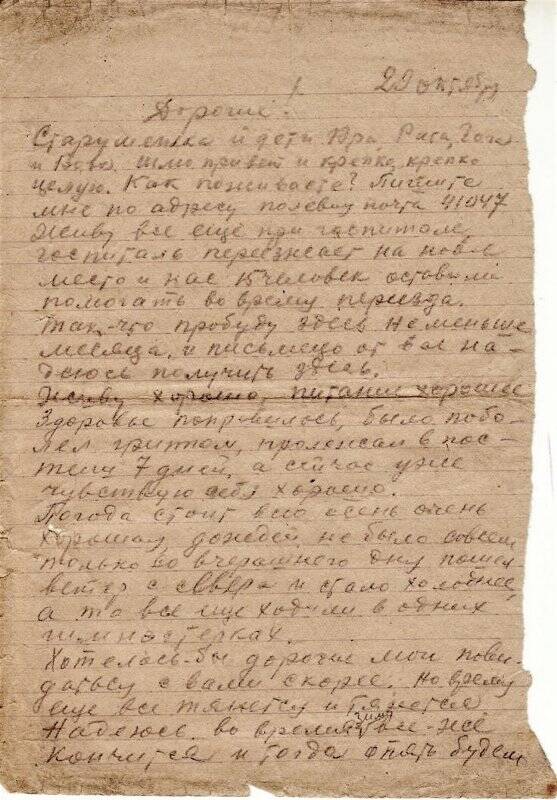 29 октября
Дорогие!
Старушенка и дети Ира, Рита, Гога
и Вова. Шлю привет и крепко, крепко
целую. Как поживаете? Пишите
мне по адресу полевая почта 41047
Живу все еще при госпитале,
госпиталь переезжает на новое
место и нас 15 человек оставили
помогать во время переезда.
Так-что пробуду здесь не меньше
месяца, и письмецо от вас на-
деюсь получить здесь.
Живу хорошо, питание хорошее
Здоровье поправилось, было побо-
лел гриппом, пролежал в пос-
тели 7 дней, а сейчас уже
чувствую себя хорошо.
Погода стоит всю осень очень
хорошая, дождей не было совсем
только со вчерашнего дня пошел
ветер с севера и стало холоднее,
а то все еще ходили в одних
гимнастерках.
Хотелось-бы дорогие мои пови-
даться с вами скорее. Но время
еще все тянется и тянется
Надеюсь во время зимы все-же
кончится и тогда опять будем